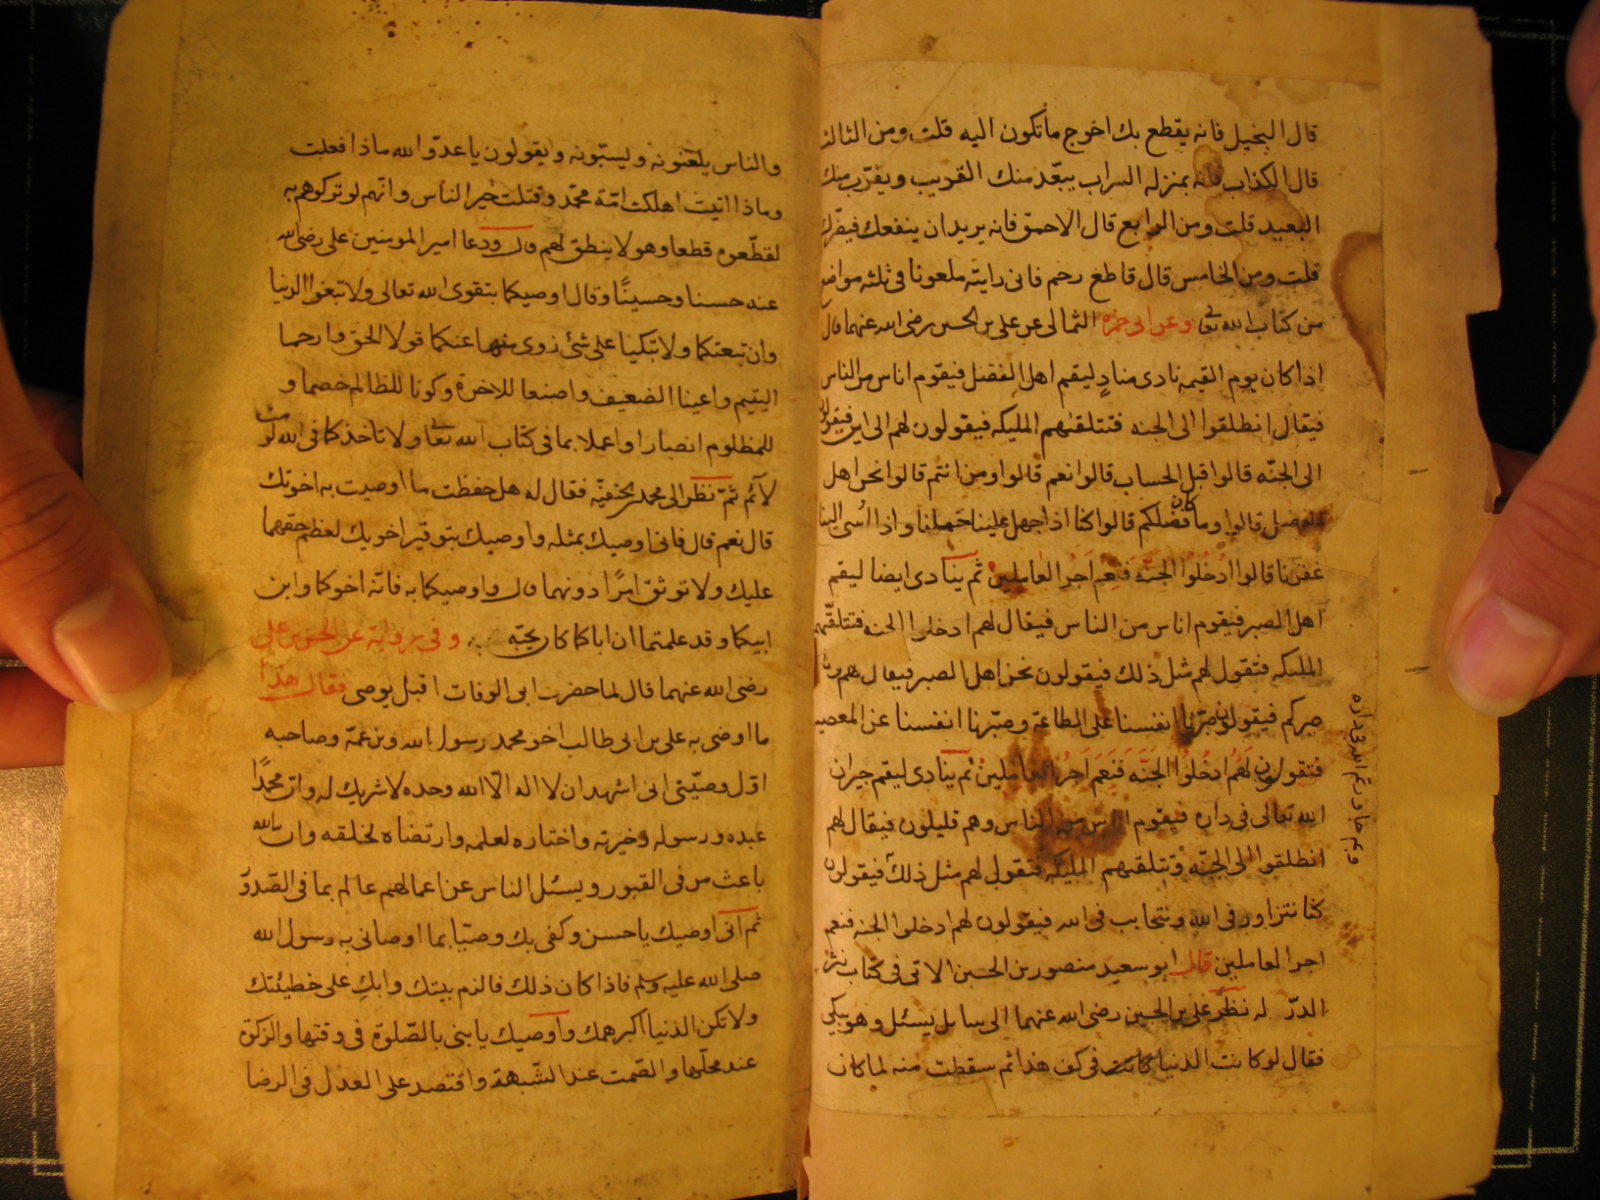 قال البخيل فانه يقطع بك احوج ما تكون اليه قلت ومن الثالث
قال الكذاب فانه بمنزله السراب يبعّد منك القريب ويقرّب منك
البعيد قلت ومن الرابع قال الاحمق فانه يريد ان ينفعك فيضرك
قلت ومن الخامس قال قاطع رحم فانى رايته ملعونا فى ثلثه مواضع
من كتاب الله تعالى وعن ابى حمزه الثمالى عن على بن الحسين رضى الله عنهما قال
اذا كان يوم القيمه نادى منادٍ ليقم اهل الفضل فيقوم اناس من الناس
فيقال انطلقوا الى الجنه فتتلقهم المليكه فيقولون لهم الى اين فيقولون
الى الجنّه قالوا قبل الحساب قالوا نعم قالوا ومن انتم قالوا نحن اهل
الفضل قالوا وما كان فضلكم قالوا كنا اذا جهل علينا حملنا واذا اسئ الينا
غفرنا قالوا ادخلوا الجنّه فنعم اجر العاملين ثم ينادى ايضا ليقم
اهل الصبر فيقوم اناس من الناس فيقال لهم ادخلوا الجنه فتتلقّهم
المليكه فتقول لهم مثل ذلك فيقولون نحن اهل الصبر فيقال لهم وما
صبركم فيقولون صبّرنا انفسنا على الطاعة وصبّرنا انفسنا عن المعصيه
فتقولون لهم ادخلوا الجنّه فنعم اجر العاملين ثم ينادى ليقم جيران
الله تعالى فى داره فيقوم اناس من الناس وهم قليلون فيقال لهم
انطلقوا الى الجنّه وتتلقهم المليكه فتقول لهم مثل ذلك فيقولون
كنا نتزاور فى الله ونتحابب فى الله فيقولون لهم ادخلوا الجنه فنعم
اجر العاملين قال ابو سعيد منصور بن الحسين الاتى فى كتاب نثر
الدرّ له نظر على بن الحسين رضى الله عنهما الى سايل يسئل وهو يبكى
فقال لو كانت الدنيا كانت فى كف هذا ثم سقطت منه لما كان
وبم جاورتم الله فى داره
والناس يلعنونه ويسبّونه ويقولون يا عدوّ الله ماذا فعلت
وماذا اتيت اهلكت امّة محمّد وقتلت خير الناس وانّهم لو تركوهم به
لقطّعوه قطعا وهو لا ينطق لهم قال ودعا امير المومنين على رضى الله
عنه حسنا وحسينًا وقال اوصيكما بتقوى الله تعالى ولا تبغوا الدنيا
وان تبعتكما ولا تبكيا على شئ زوى منها عنكما قولا الحق وارحما
اليتيم واعينا الضعيف واصنعا للاخرة وكونا للظالم خصما و
للمظلوم انصارا واعملا بما فى كتاب الله تعالى ولا تاخذكما فى الله لومت
لائم ثمّ نظر الى محمد بن الحنفيّه فقال له هل حفظت ما اوصيت به اخوتك
قال نعم قال فانى اوصيك بمثله واوصيك بتوقير اخويك لعظم حقهما
عليك ولا توثق امرًا دونهما قال واوصيكما به فانّه اخوكما وابن
ابيكما وقد علمتما ان اباكما كان يحبّه وفى رواية عن الحسن بن على
رضى الله عنهما قال لما حضرت ابى الوفات اقبل يوصى فقال هذا
ما اوصى به على بن ابى طالب اخو محمد رسول الله وبن عمّه وصاحبه
اوّل وصيّتى انى اشهد ان لا اله الّا الله وحده لا شريك له وان محمّدًا
عبده ورسوله وخيرته واختاره لعلمه وارتضاه لخلقه وان الله
باعث من فى القبور ويسئل الناس عن اعمالهم عالم بما فى الصّدور
ثم انى اوصيك يا حسن وكفى بك وصيّا بما اوصانى به رسول الله
صلى الله عليه وسلم فاذا كان ذلك فالزم بيتك وابك على خطيئتك
ولا تكن الدنيا اكبر همك واوصيك يا بنى بالصّلوة فى وقتها والزكوة
عند محلّها والصّمت عند الشّبهة واقتصد على العدل فى الرضا